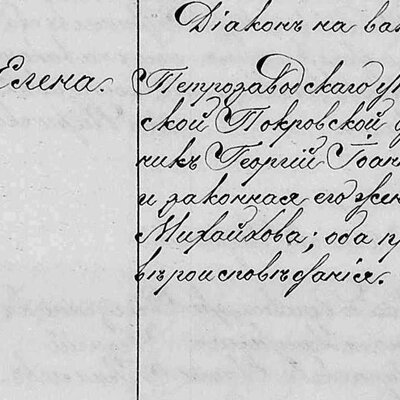 Діаконъ на ва
Елена. Петрозаводскаго у
ской Покровской
никъ Георгій Іоан
и законная его жен
Михайлова; оба п
вѣроисповѣданія.